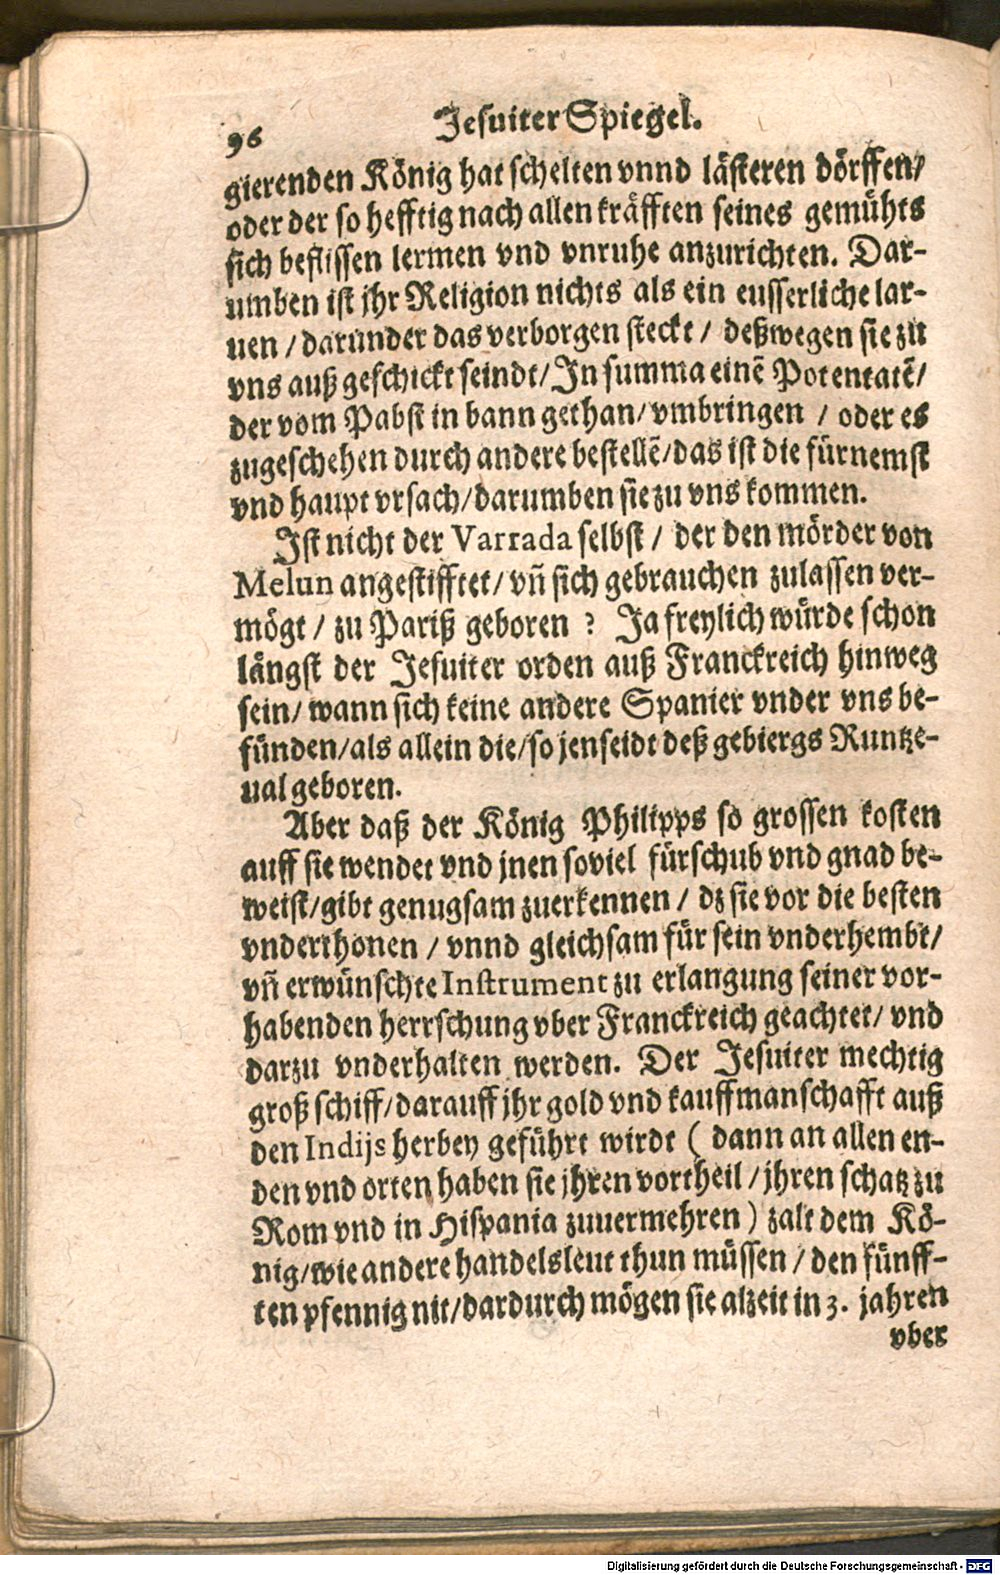 96
Jesuiter Spiegel.
gierenden König hat schelten vnnd lästeren dörffen/
oder der so hefftig nach allen kräfften seines gemühts
sich beflissen lermen vnd vnruhe anzurichten. Dar-
umben ist jhr Religion nichts als ein eusserliche lar-
uen / darunder das verborgen steckt / deßwegen sie zu
vns auß geschickt seindt/ In summa einē Potentatē/
der vom Pabst in bann gethan/ vmbringen / oder es
zugeschehen durch andere bestellē/ das ist die fürnemst
vnd haupt vrsach/ darumben sie zu vns kommen.
Ist nicht der Varrada selbst / der den mörder von
Melun angestifftet/ vn̄ sich gebrauchen zulassen ver-
mögt / zu Pariß geboren ? Ja freylich würde schon
längst der Jesuiter orden auß Franckreich hinweg
sein/ wann sich keine andere Spanier vnder vns be-
fünden/ als allein die/ so jenseidt deß gebiergs Runtze-
ual geboren.
Aber daß der König Philipps so grossen kosten
auff sie wendet vnd jnen soviel fürschub vnd gnad be-
weist/ gibt genugsam zuerkennen / dz sie vor die besten
vnderthonen / vnnd gleichsam für sein vnderhembt/
vn̄ erwünschte Instrument zu erlangung seiner vor-
habenden herrschung vber Franckreich geachtet/ vnd
darzu vnderhalten werden. Der Jesuiter mechtig
groß schiff/ darauff jhr gold vnd kauffmanschafft auß
den Indijs herbey geführt wirdt ( dann an allen en-
den vnd orten haben sie jhren vortheil / jhren schatz zu
Rom vnd in Hispania zuuermehren ) zalt dem Kö-
nig/ wie andere handelsleut thun müssen / den fünff-
ten pfennig nit/ dardurch mögen sie alzeit in 3. jahren
vber
Digitalisierung gefördert durch die Deutsche Forschungsgemeinschaft - DFG